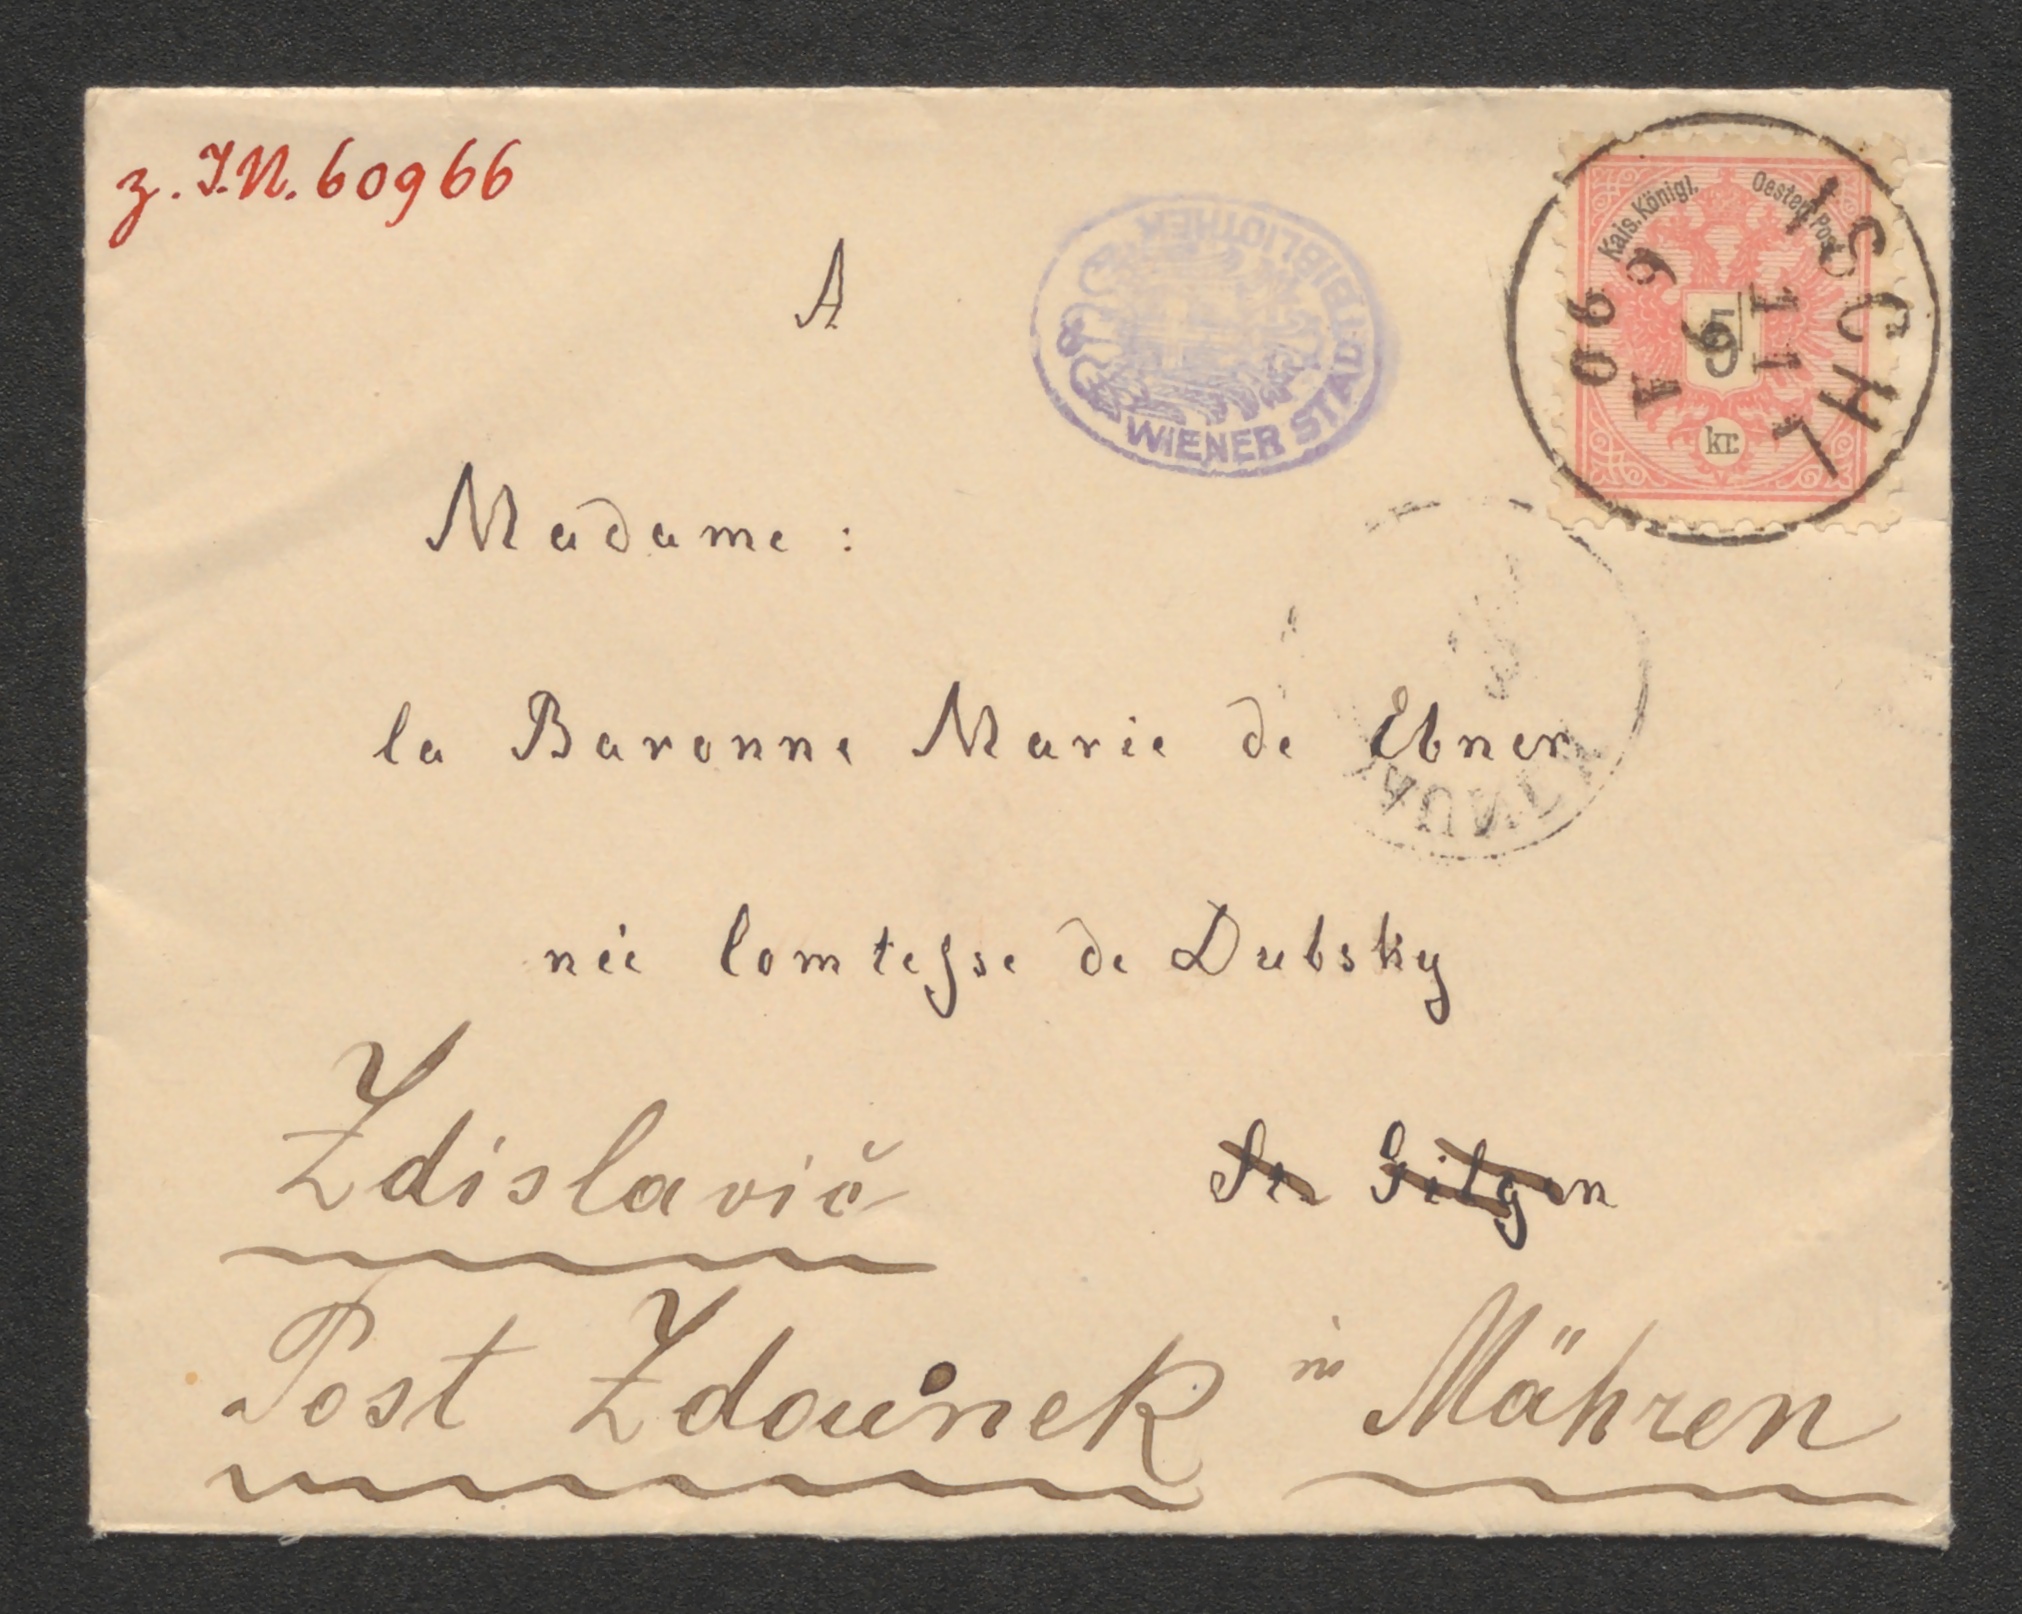 z. I.N. 60966
A
WIENER STADTBIBLIOTHEK
Kais. Königl. Oesterr. Post
5
kr.
ISCHL
11
9 9
90
Madame :
la Baronne Marie de Ebner
née Comtesse de Dubsky
Zdislavič
St. Gilgen
Post Zdounek in Mähren